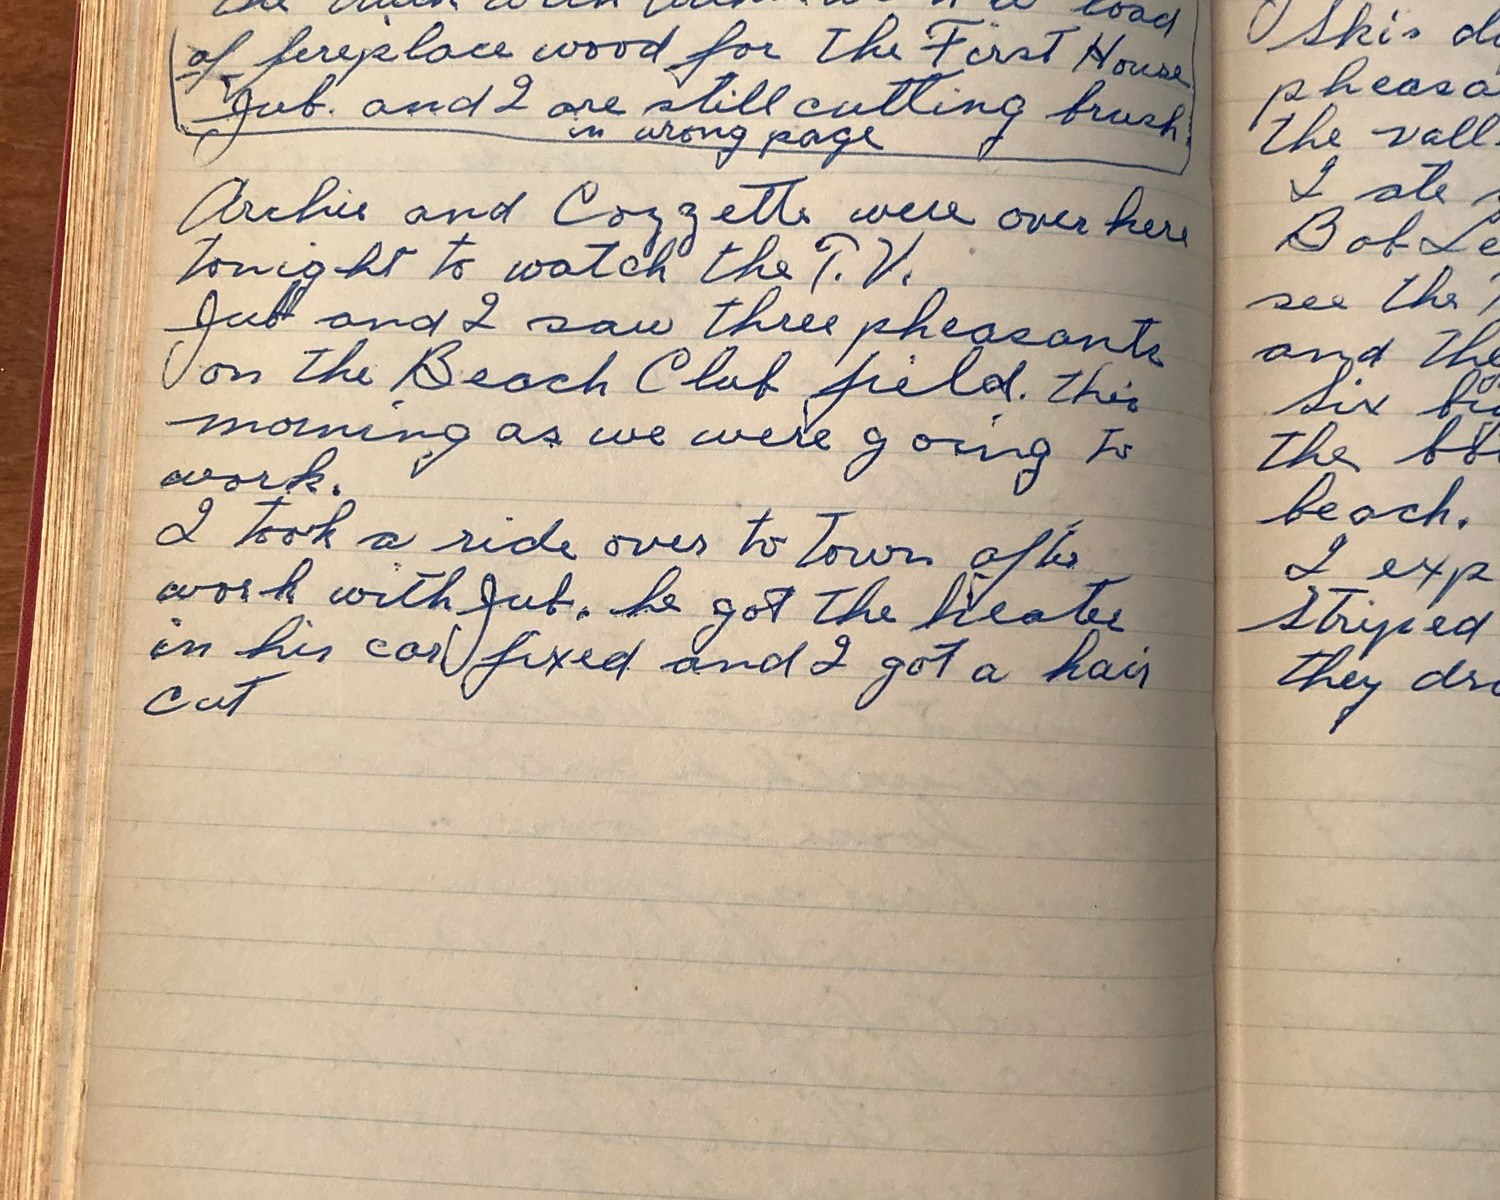 load
of fereplace wood for the First House
Jub. and I are still cutting brush.
in wrong page
Archie and Cozzette were over here
tonight to watch the T.V.
Jub and I saw three pheasants
on the Beach Club field. this
morning as we were going to
work.
I took a ride over to town after
work with Jub. he got the heater
in his car fixed and I got a hair
cut
this
the
I ate
Bob
see the
and the
Six
the
beach.
I
Striped
they